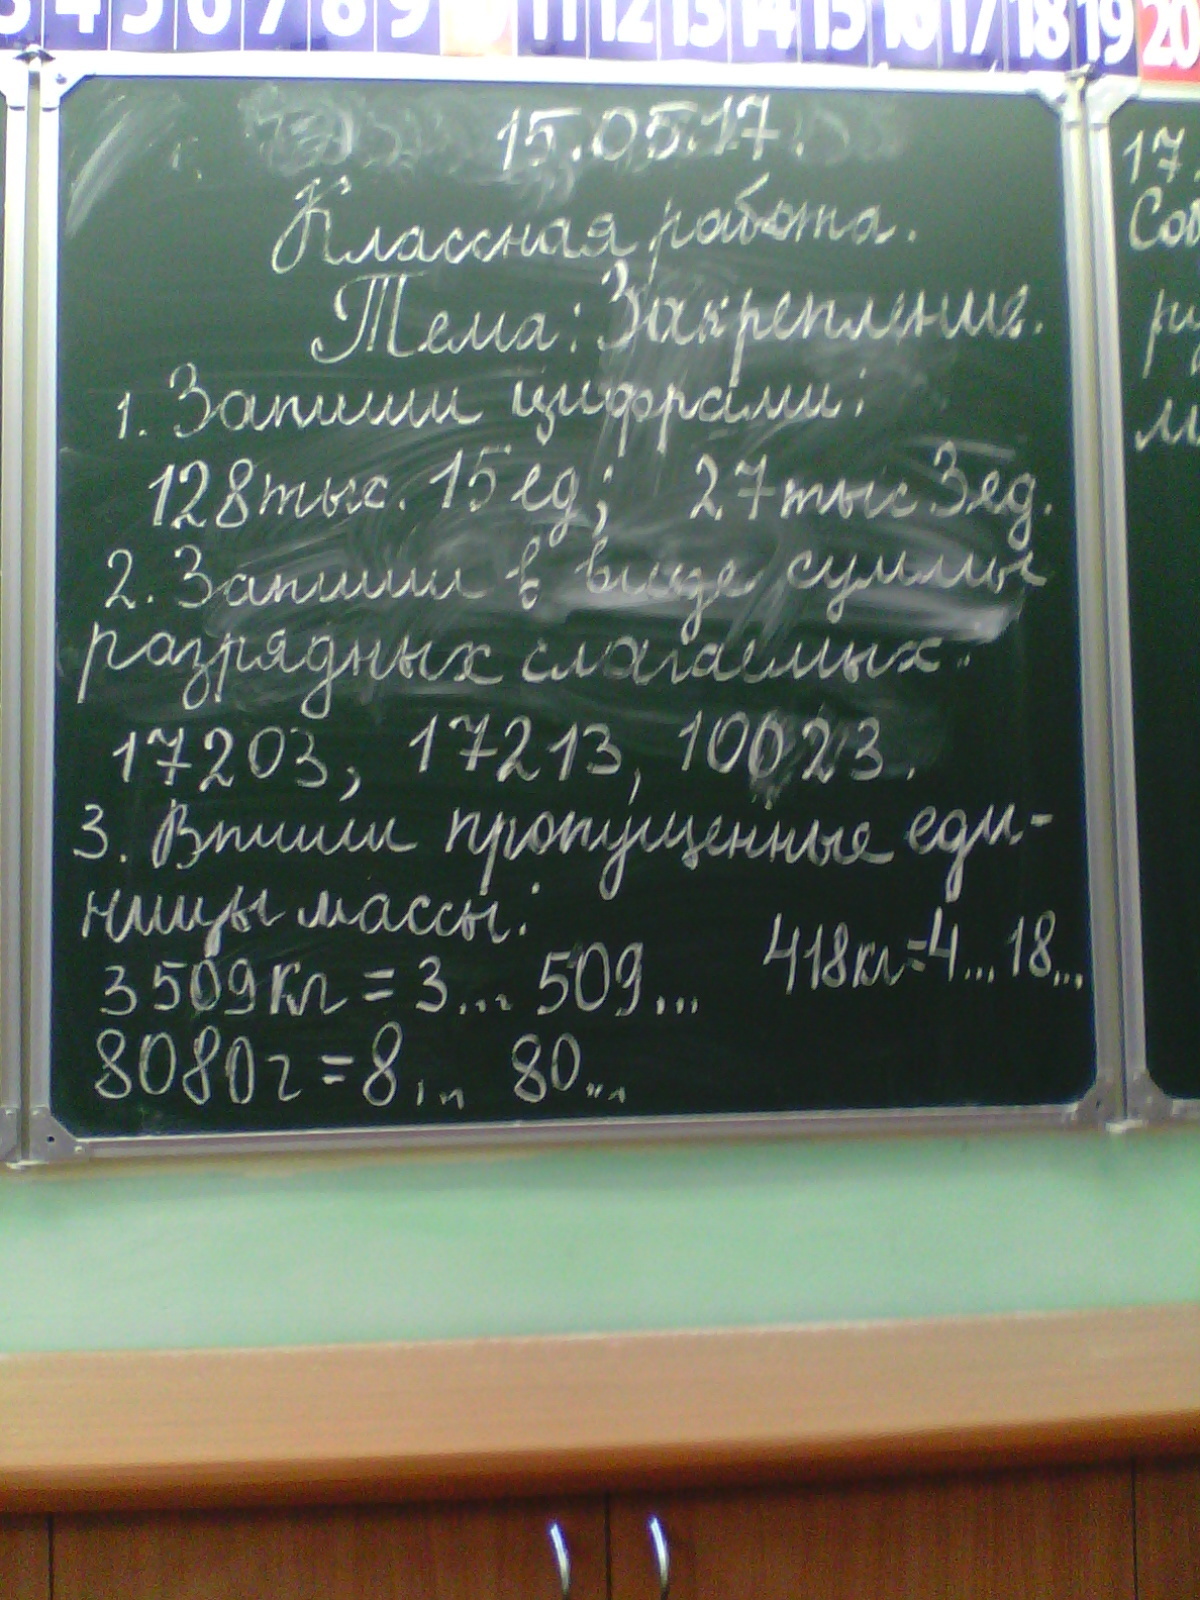 3 4 5 6 7 8 9 10 11 12 13 14 15 16 17 18 19 20
15.05.17.
Классная работа.
Тема: Закрепление.
1. Запиши цифрами:
128тыс. 15ед; 27тыс 3ед.
2. Запиши в виде суммы
разрядных слагаемых.
17203, 17213, 10023.
3. Впиши пропущенные еди-
ницы массы:
3509кг = 3... 509... 418кг=4...18...
8080г = 8... 80...
17.